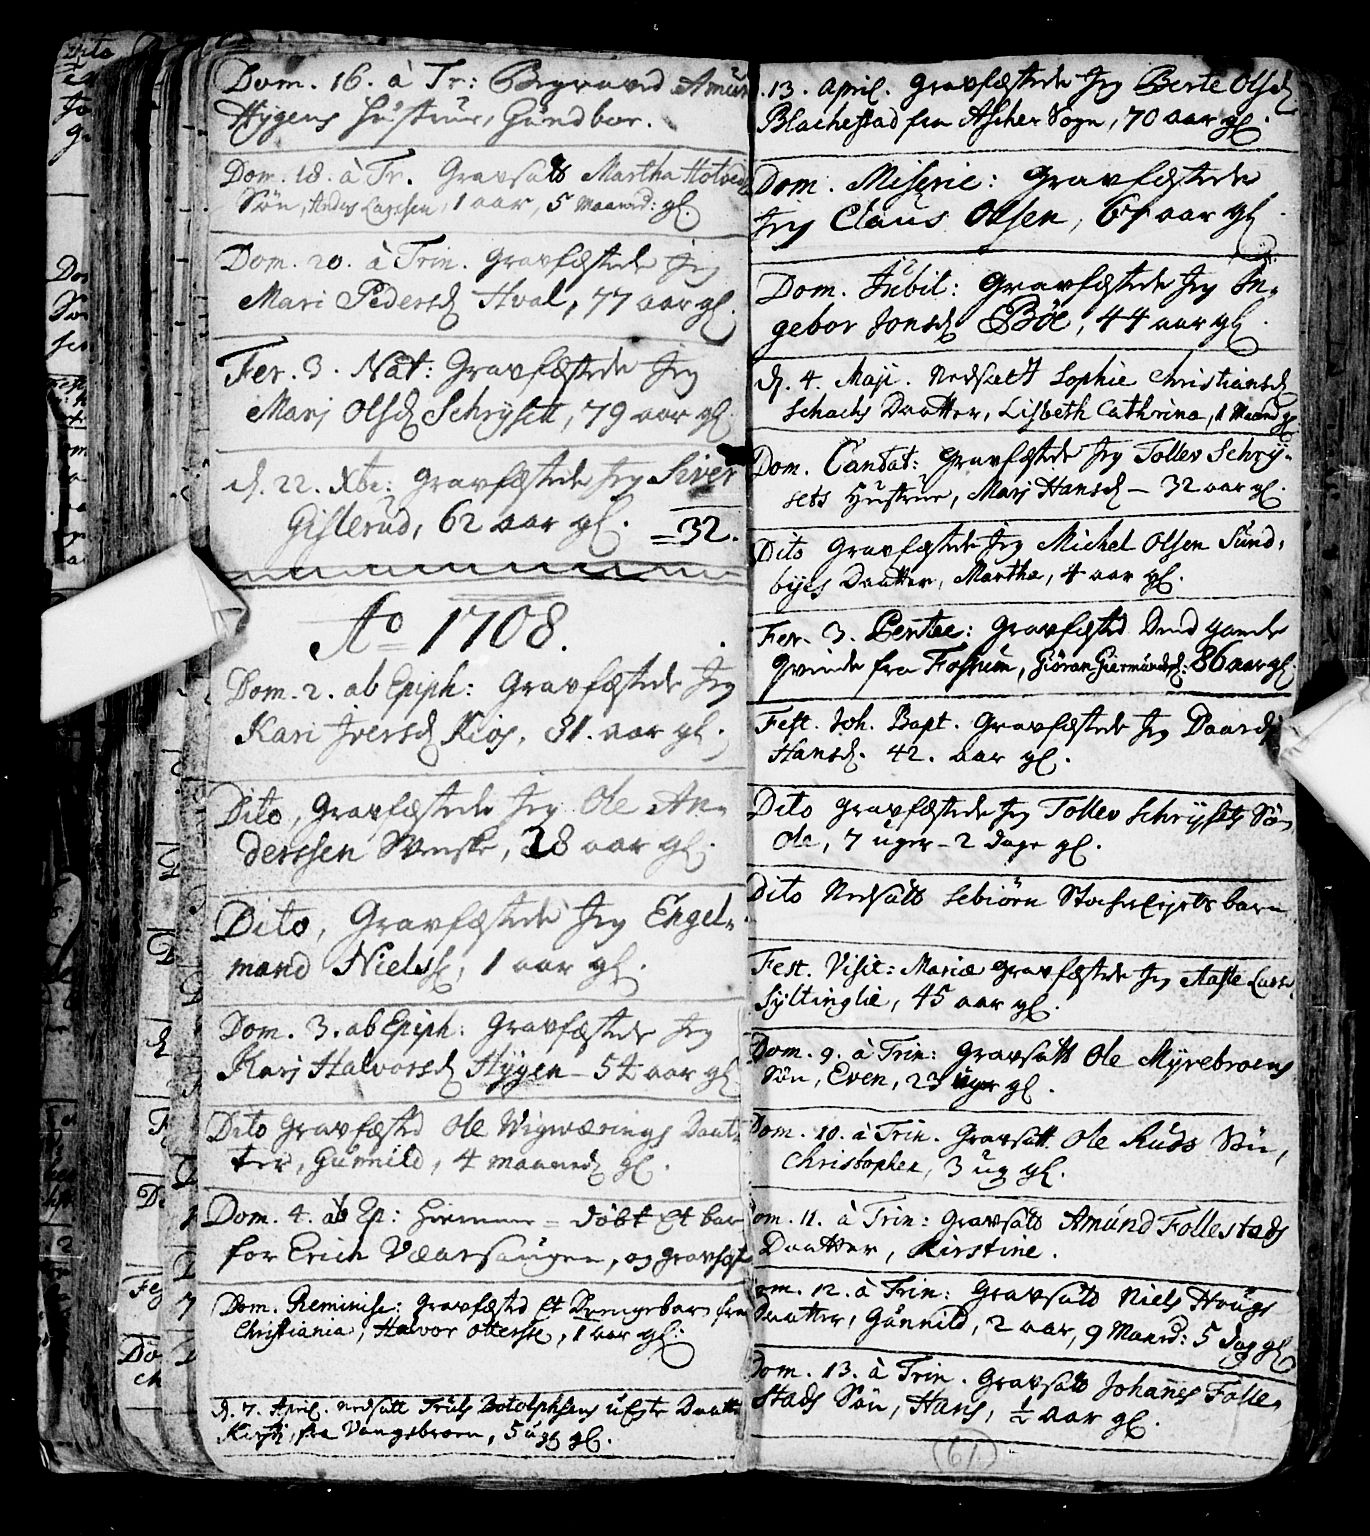 Dom. 16. à Tr: Begraved Amun
Hygens Hustrue, Gundbor.
Dom. 18. à Tr. Gravsatt Martha Hotved
Søn, Anders Larssen, 1 aar, 5 Maaned: gl.
Dom. 20. à Trin. Gravfæstede Jeg
Mari Pedersd Hval, 77 aar gl.
Fer. 3. Nat: Gravfæstede Jeg
Marj Olsd Schrÿsett, 79 aar gl.
d. 22. Xbr: Gravfæstede Jeg Siver
Gisterud, 62 aar gl. =32.
Ao 1708.
Dom. 2. ab Epiph: Gravfæstede Jeg
Kari Jversd Kios, 81. aar gl.
Dito, Gravfæstede Jeg Ole An-
derssen Svenske, 28 aar gl.
Dito, Gravfæstede Jeg Engel-
mand Nielss, 1 aar gl.
Dom. 3. ab Epiph: Gravfæstede Jeg
Karj Halvorsd Hÿgen - 54 aar gl
Dito Gravfæsted Ole Wigværings Daat-
ter, Gunnild, 4 maaned gl.
Dom. 4. ab Ep: hiemme = døbt Et bar
for Erich Væarsaugen, og gravfæst
Dom. Reminise: Gravfæsted Et Drengebarn fra
Christiania, Halvor Otterss, 1 aar gl:
d. 7. April. nedsatt Truls Botolphsens uEgte Daatt
Kirsti, fra Vangsbraaten, 5 ug gl.
13. April. Gravfæstede Jeg Berte Olsd
Blachestad fra Ascher Sogn, 70 aar gl.
Dom. Miseric: Gravfæstede
Jeg Claus Olsen, 67 aar gl
Dom. Jubil: Gravfæstede Jeg In-
gebor Jonsd Bøe, 44 aar gl
d. 4. Maji. Nedsatt Sophie Christiansd
Schachs Daatter, Lisbeth Cathrina, 1 Maaned gl
Dom. Cantat: Gravfæstede Jeg Tollev Schrÿ-
sets Hustrue, Marj Hansd - 32 aar gl.
Dito Gravfæstede Jeg Michel Olsen Sund-
byes Daatter, Martha, 4 aar gl.
Fer. 3. Pentec: Gravfæsted Dend gamle
Qvinde fra Fossum, Giøran Giermundsd: 86 aar gl
Fest. Joh. Bapt. Gravfæstede Jeg Daard
Hansd. 42. aar gl.
Dito Gravfæstede Jeg Tollev Schrÿsets Sø
Ole, 7 uger - 2 dage gl.
Dito Nedsatt Sebiørn barn
Fest. Visit: Mariæ gravfæstede Jeg Aaste Lars
Syltinglie, 45 aar gl.
Dom. 9. à Trin: Gravsatt Ole Mÿrebraaens
Søn, Even, 23 uger gl.
Dom. 10. à Trin. Gravsatt Ole Ruds Søn,
Christopher, 3 ug gl.
om. 11. à Trin: Gravsatt Amund Follestads
Daatter, Kirstine.
om. 12. à Trin: Gravsatt Niels Haugs
Daatter, Gunnild, 2 aar, 9 Maaned: 5 dag gl
Dom. 13. à Trin. Gravsatt Johanes Folle-
stads Søn, Hans, ½ aar gl.
(61.)